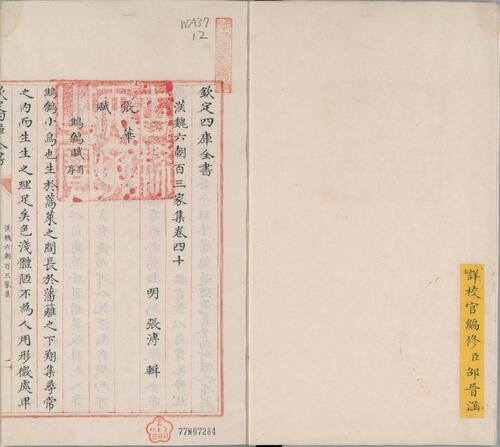 詳校官編修臣邵晋涵
WA37
12
欽定四庫全書
漢魏六朝百三家集卷四十
明 張溥 輯
張華
賦
鷦鷯賦有序
鷦鷯小鳥也生於蒿萊之間長於藩籬之下翔集尋常
之內而生生之理足矣色淺體陋不為人用形微處卑
漢魏六朝百三家集
一
77W07284